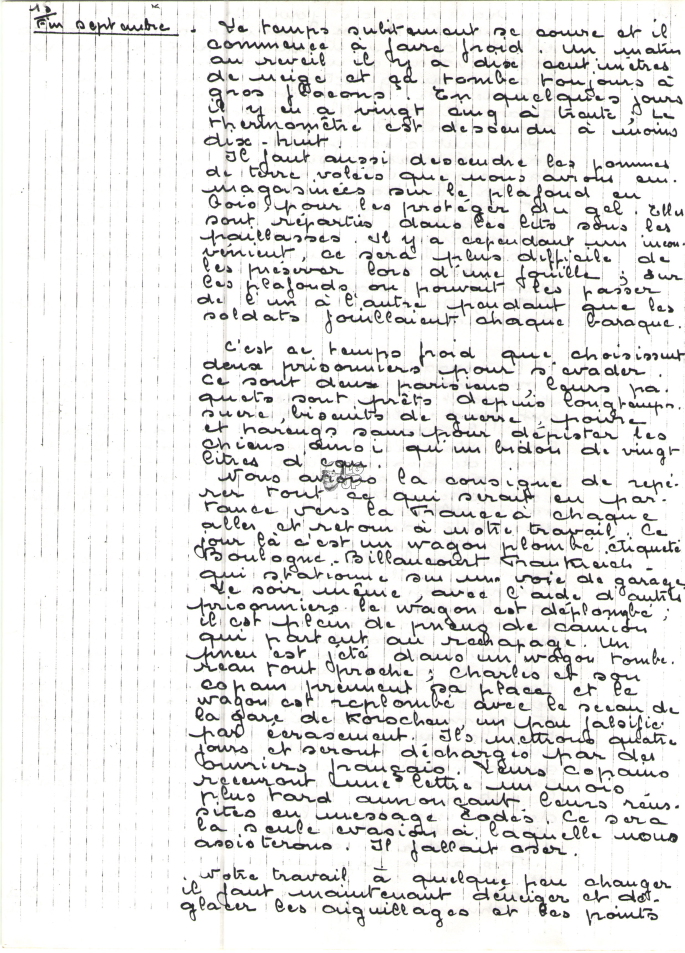 13
Fin septembre. Le temps subitement se couvre et il
commence à faire froid. Un matin
au reveil il y a dix centimètres
de neige et ça tombe toujours à
gros flocons. En quelques jours
il y en a vingt cinq à trente; Le
thermomètre est descendu à moins
dix-huit.
Il faut aussi descendre les pommes
de terre volées que nous avions em-
magasinées sur le plafond en
bois, pour les protéger du gel. Elles
sont réparties dans les lits sous les
paillasses. Il y a cependant un incon-
vénient, ce sera plus difficile de
les préserver lors d'une fouille; sur
les plafonds on pouvait les passer
de l'un à l'autre pendant que les
soldats fouillaient chaque baraque.
C'est ce temps froid que choisissent
deux prisonniers pour s'évader.
Ce sont deux parisiens, leurs pa-
quets sont prêts depuis longtemps.
sucre, biscuits de guerre, poivre
et harengs saurs pour dépister les
chiens ainsi qu'un bidon de vingt
litres d'eau.
Nous avions la consigne de repé-
rer tout ce qui serait en par-
tance vers la France à chaque
aller et retour à notre travail. Ce
jour là c'est un wagon plombé étiqueté
Boulogne-Billancourt Frankreich-
qui stationne sur une voie de garage
Le soir même, avec l'aide d'autres
prisonniers le wagon est déplombé;
il est plein de pneus de camion
qui partent au rechapage. Un
pneu est jeté dans un wagon tombe-
reau tout proche; Charles et son
copain prennent sa place et le
wagon est replombé avec le sceau de
la gare de Korschen, un peu falsifié
par écrasement. Ils mettrons quatre
jours et seront déchargés par des
ouvriers français. Leurs copains
recevront une lettre un mois
plus tard annonçant leurs réus-
sites en message codés. Ce sera
la seule evasion à laquelle nous
assisterons. Il fallait oser.
Notre travail à quelque peu changer
il faut maintenant déneiger et dé-
glacer les aiguillages et les points